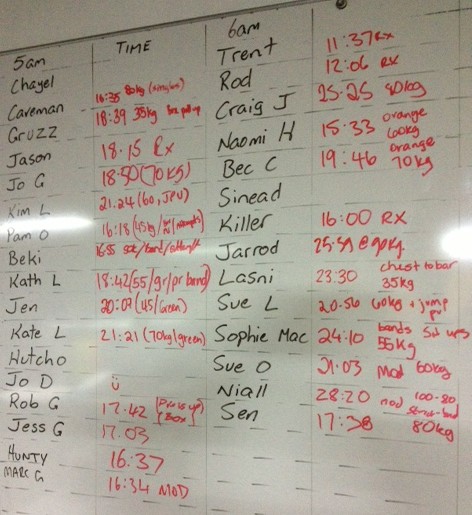 5am TIME
Chayel
Caveman 16:35 80kg
Gruzz 18:39 35kg
Jason 18.15 Rx
Jo G 18:50 (70kg)
Kim L 21.24 (60, JPU)
Pam O 16:18 (45kg/
Beki 16:55
Kath L 18:42 (55/gr/pr band)
Jen 20:02 (45/Green)
Kate L 21:21 (70kg/green)
Hutcho
Jo D ü
Rob G 17:42
Jess G 17.03
HUNTY 16:37
MARC G 16:34 MOD
6am
Trent 11:37 Rx
Rod 12:06 Rx
Craig J 25:25 40kg
Naomi H 15:33 orange 60kg
Bec C 19:46 orange 70kg
Sinead
Killer 16:00 RX
Jarrod 25:59 @ 90kg
Lasni 23:30 chest to bar 35kg
Sue L 20:56 60kg + jump pu
Sophie Mac 24:10 bands Sit ups 55kg
Sue O 31:03 Mod 60kg
Niall 28:20 mod 100-80
Sen 17:38 80kg